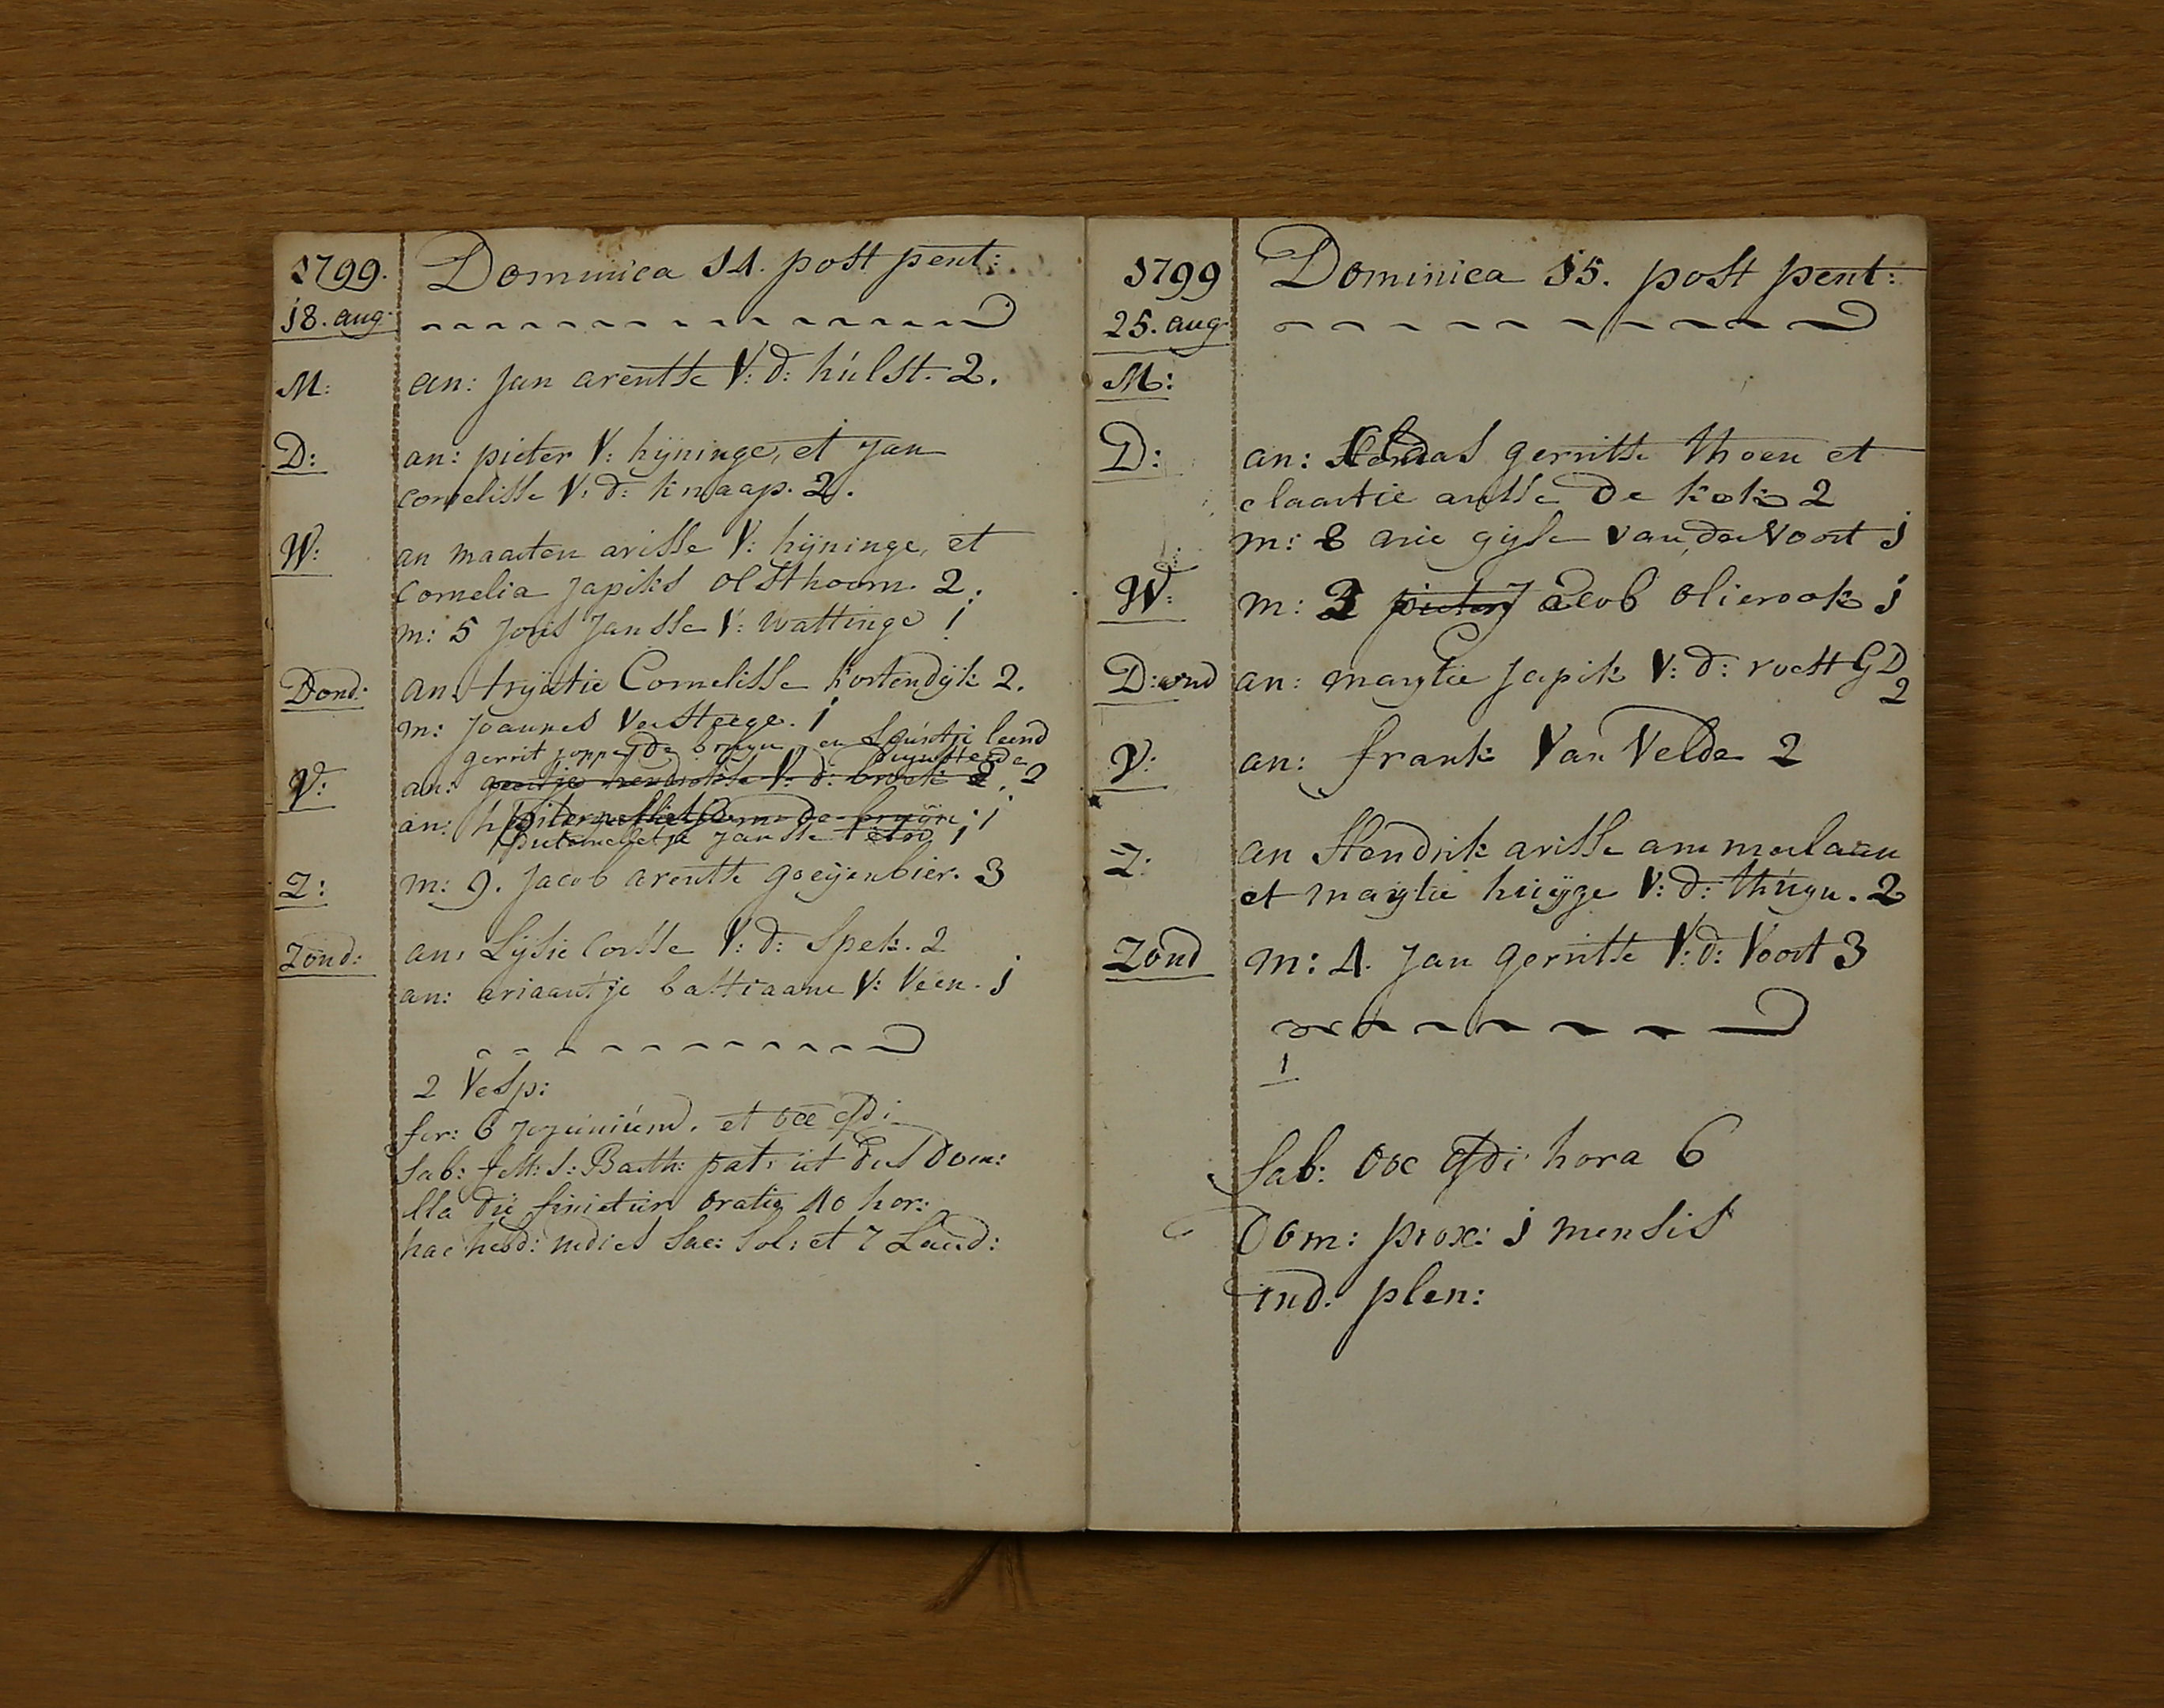 1799. Dominica 14. post pent:
18. aug.
M: an: Jan arentse V: d: hulst. 2.
D: an: pieter V: hijninge, et Jan
Cornelisse V: d: knaap. 2.
W: an maarten arisse V: hijninge, et
Cornelia Japiks olsthoorn. 2.
m: 5 Joris Jansse V: wattinge 1
Dond: an: trijntie Cornelisse kortendijk 2.
m: Joannes Versteege. 1
gerrit joppe de bruyn en Leuntje leend
duynsteede
V: an: 2
an: pieternelletje Jansse
Z: m: 9. Jacob arentse goeijenbier. 3
Zond: an: Lysie Corsse V: d: Spek. 2
an: ariaantje bastiaane V: Veen. 1
2 Vesp:
fer: 6 jejunium. et occ
Sab: fest: S: Barth: pat: ut dies dom:
illa die finietur oratio 40 hor:
hac hebd: medies Sac: Sol: et 7 Laud:
1799 Dominica 15. post pent:
25. aug
M:
D: an: Claas gerritse thoen et
claartie arisse de kok 2
m: 8 arie gijse van der Voort 1
W: m: 3 pieter Jacob olierook 1
D:ond an: maytie Japik V: d: voest GD
2
V: an: frank Van Velde 2
Z: an Hendrik arisse ammerlaan
et maytie huijge V: d: thuyn. 2
Zond m: 4. Jan gerritse V: d: Voort 3
1
Sab: occ hora 6
Dom: prox: 1 mensis
ind. plen: